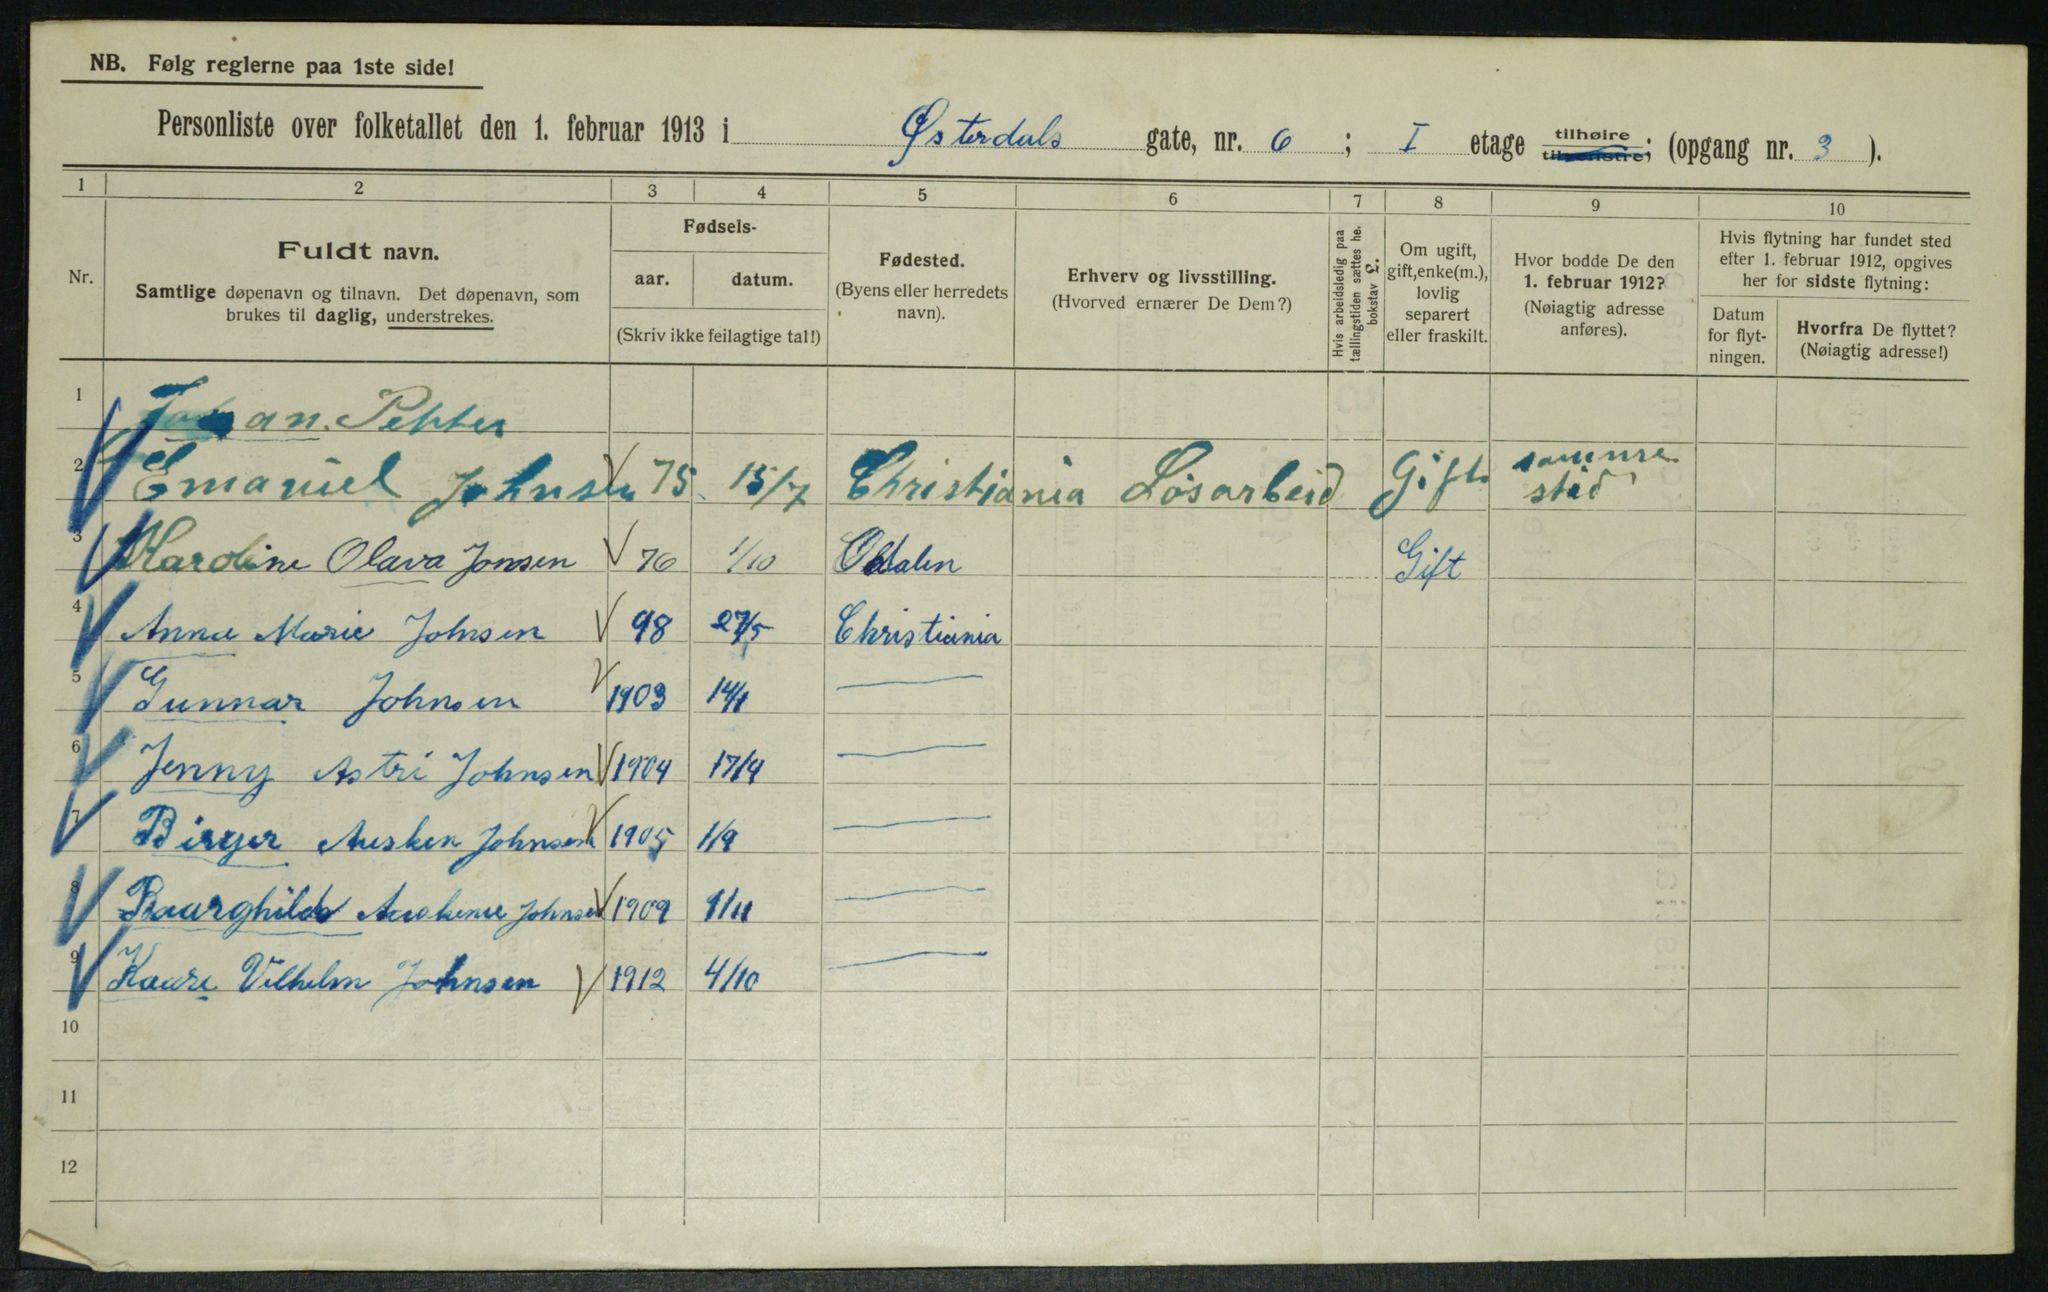 NB. Følg reglerne paa 1ste side!
Personliste over folketallet den 1. februar 1913 i Østerdals gate, nr. 6 ; I etage tilhøire tilvenstre; (opgang nr. 3 ).
1 2 3 4 5 6 7 8 9 10
Nr.
Fuldt navn.
Samtlige døpenavn og tilnavn. Det døpenavn, som
brukes til daglig, understrekes.
Fødsels-
aar. datum.
(Skriv ikke feilagtige tal!)
Fødested.
(Byens eller herredets
navn).
Erhverv og livsstilling.
(Hvorved ernærer De Dem?)
Hvis arbeidsledig paa
tællingstiden sættes he.
bokstav L.
Om ugift,
gift, enke(m.),
lovlig
separert
eller fraskilt.
Hvor bodde De den
1. februar 1912?
(Nøiagtig adresse
anføres).
Hvis flytning har fundet sted
efter 1. februar 1912, opgives
her for sidste flytning:
Datum
for flyt-
ningen.
Hvorfra De flyttet?
(Nøiagtig adresse!)
1 Johan. Petter
2 Emanuel Johnsen 75 15/7 Christiania Løsarbeid Gift samme sted
3 Karoline Olava Jonsen 76 1/10 Odalen Gift
4 Anna Marie Johnsen 98 27/5 Christiania
5 Gunnar Johnsen 1903 14/1
6 Jenny Astri Johnsen 1904 17/4
7 Birger Johnsen 1905 1/9
8 Johnsen 1909 1/11
9 Kaare Vilhelm Johnsen 1912 4/10
10
11
12